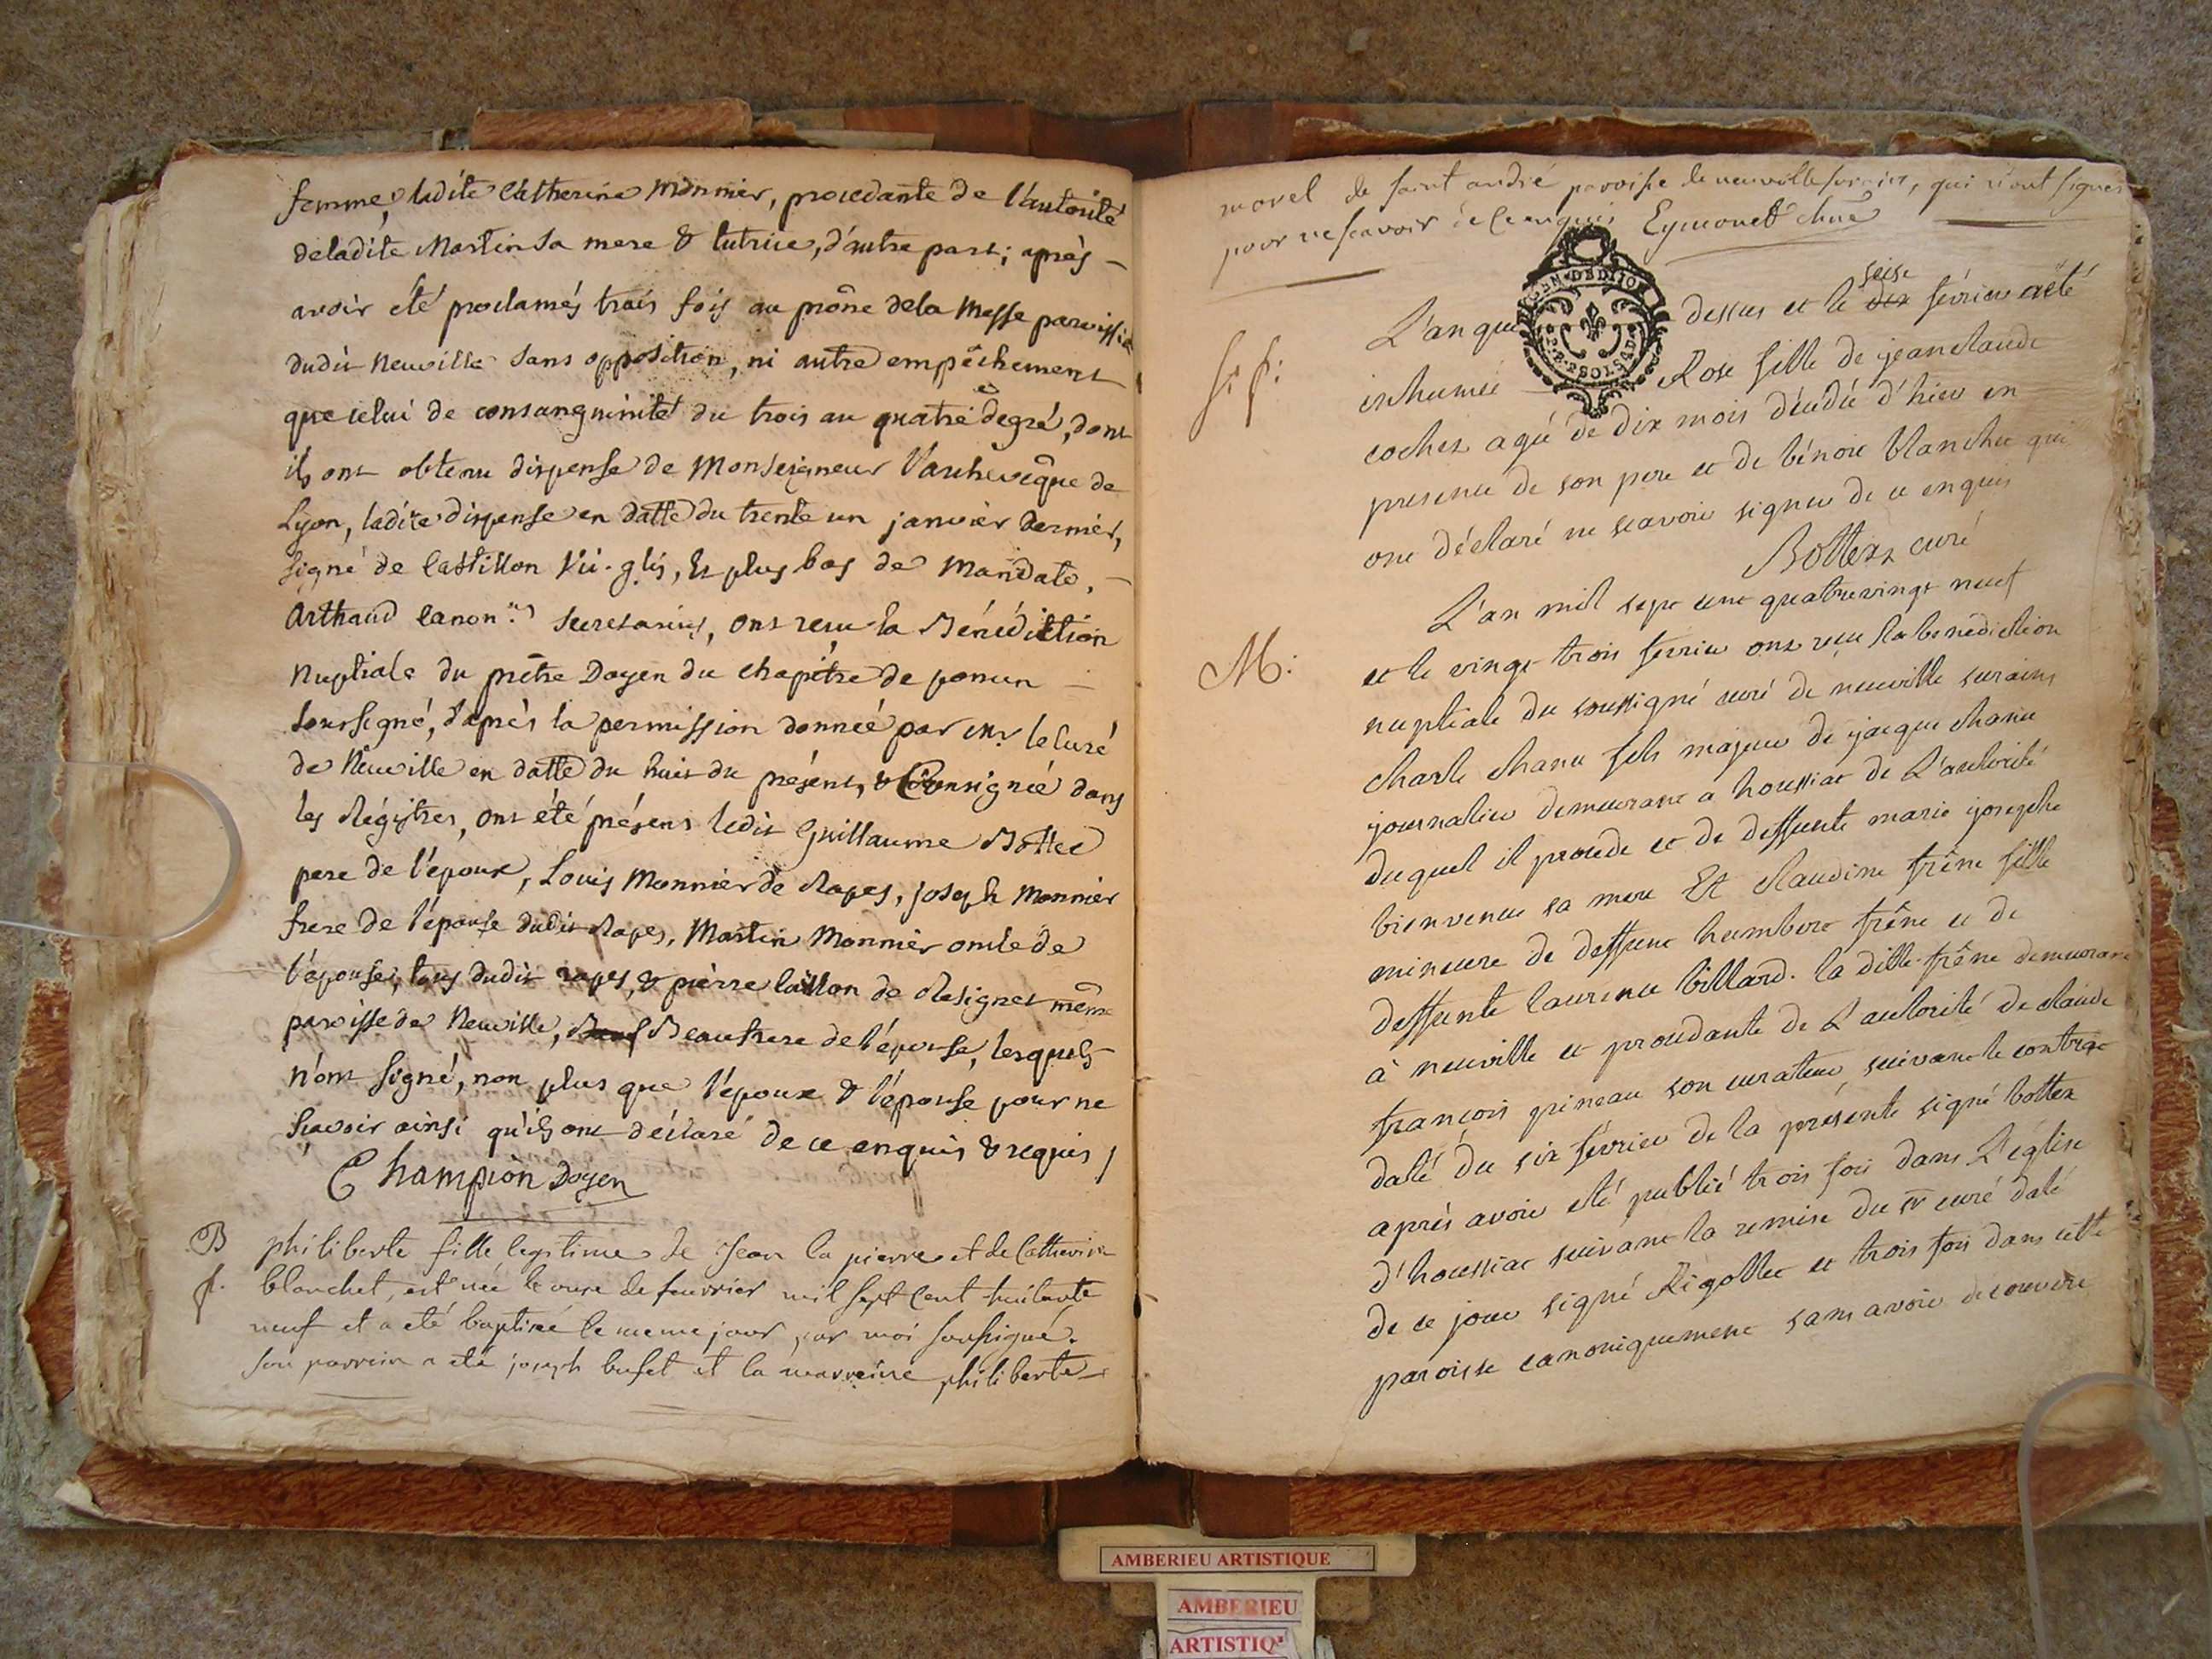 femme, ladite Catherine Monnier, procedante de l'autorité
deladite Martin sa mere & tutrice, d'autre part; après
avoir été proclamés trois fois au prône dela Messe paroissia
dudit Neuville sans opposition, ni autre empêchement
que celui de consanguinité du trois au quatre degré, dont
ils ont obtenu dispense de Monseigneur l'archevêque de
Lyon, ladite dispense en datte du trente un janvier dernier,
signé de Castillon Vic. g.lis, & plus bas de Mandato,
Arthaud canon.us secretarius, ont reçu la Bénédiction
Nuptiale du prêtre Doyen du chapitre de poncin
soussigné, d'après la permission donnée par Mr. le curé
de Neuville en datte du huit du présent, & Consignée dans
les Régistres, ont été présens ledit Guillaume Bottex
pere de l'epoux, Louis Monnier de Rapes, joseph Monnier
frere de l'épouse dudit Rapes, Martin Monnier oncle de
l'épouse, tous dudit rapes, & pierre de Resignel même
paroisse de Neuville, Beaufrere de l'épouse, lesquels
n'ont signé, non plus que l'époux & l'épouse pour ne
sçavoir ainsi qu'ils ont déclaré de ce enquis & requis /
Champion Doyen
B philiberte fille legitime de Jean la pierre et de Catherine
f. blanchet, est née le onze de fevrier mil sept cent huitante
neuf et a eté baptisée le meme jour par moi soussigné.
son parrein a eté joseph bufet et la marreine philiberte
morel de saint andré paroisse de neuville sur ain, qui n'ont signés
pour ne scavoir de ce enquis Eymonet
L'an que dessus et le dix seise février a eté
s. f: inhumée Rose fille de jean claude
cochex agée de dix mois décédée d'hier en
presence de son pere et de bénoit blanchet qui
ont déclaré ne scavoir signer de ce enquis
Bottex curé
L'an mil sept cent quatrevingt neuf
M: et le vingt trois fevrier ont reçu la benediction
nuptiale du soussigné curé de neuville surains
charle chanu fils majeur de jacque chanu
journalier demeurant a houssiat de L'autorité
duquel il procede et de deffunte marie josephe
bienvenu sa mere Et claudine frêne fille
mineure de deffunt humbert frêne et de
deffunte laurence billard. la ditte frêne demeurant
à neuville et procedante de L'autorité de claude
françois pineau son curateur suivant le contract
daté du six février de la présente signé bottex
après avoir eté publié trois fois dans L'église
d'houssiat suivant la remise du sr curé daté
de ce jour signé Rigollet et trois fois dans cette
paroisse canoniquement sans avoir decouvert
GEN. DE DIJON
AMBERIEU ARTISTIQUE
AMBERIEU
ARTISTIQ